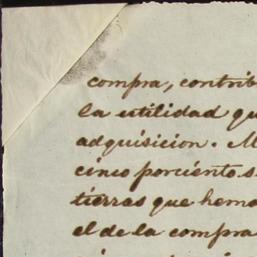 compra, contrib
la utilidad qu
adquisicion. M
cinco porciento s
tierras que hemo
el de la compra